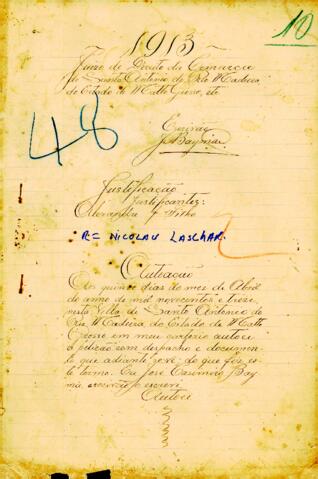 10
1913
Juizo de Direito da Comarca
de Santo Antonio do Rio Madeira,
do Estado de Matto Grosso, etc
48
Escrivão
Justificação
Justificantes:
Alexandre & Filho
R = NICOLAU LASCHAR
2
Autuação
Aos quinze dias do mez de Abril
do anno de mil novecentos e treze,
nesta Villa de Santo Antonio do
Rio Madeira, do Estado de Matto
Grosso em meu cartorio autoei
a petição com despacho e documen-
to que adiante se vê; do que fiz es-
te termo. Eu José Casimiro Bay
ma, escrivão o escrevi
Autoei